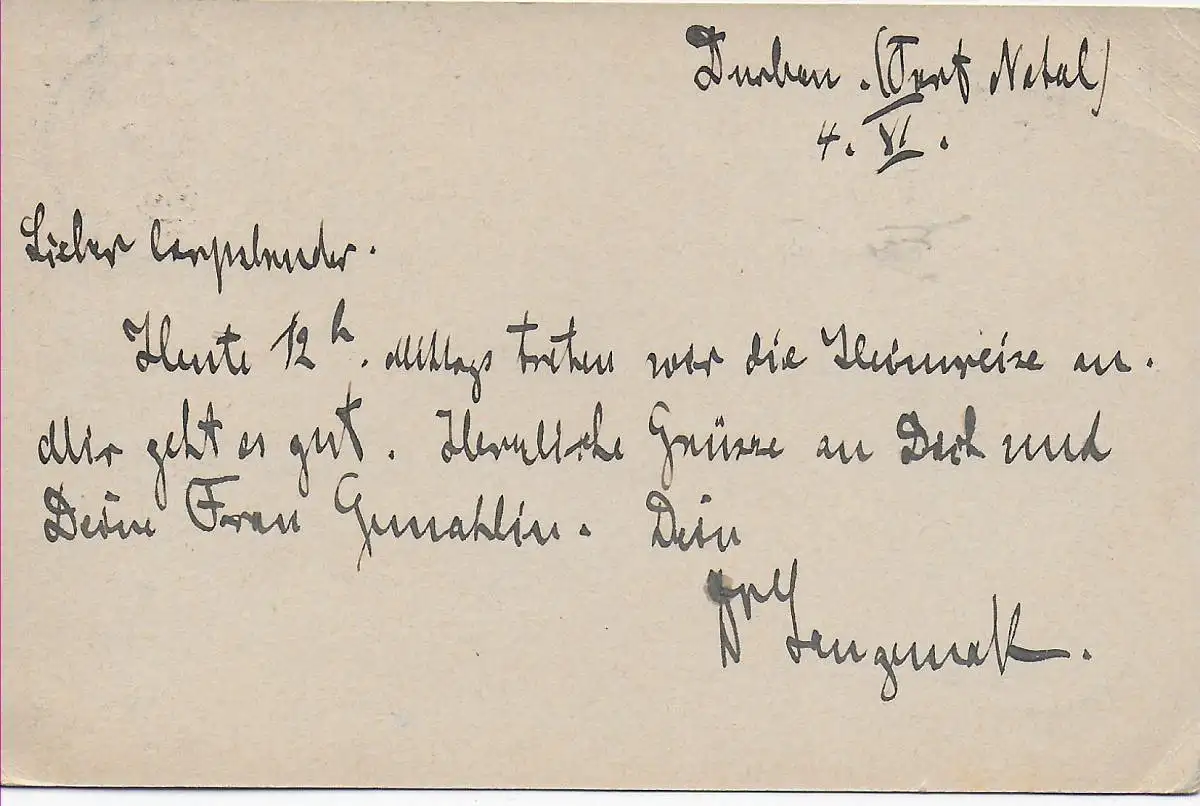 Durban. (Port Natal)
4. VI.
Lieber Corpsbruder.
Heute 12 h. Mittags treten wir die Heimreise an.
Mir geht es gut. Herzliche Grüsse an Dich und
Deine Frau Gemahlin. Dein
Dr Langemak.